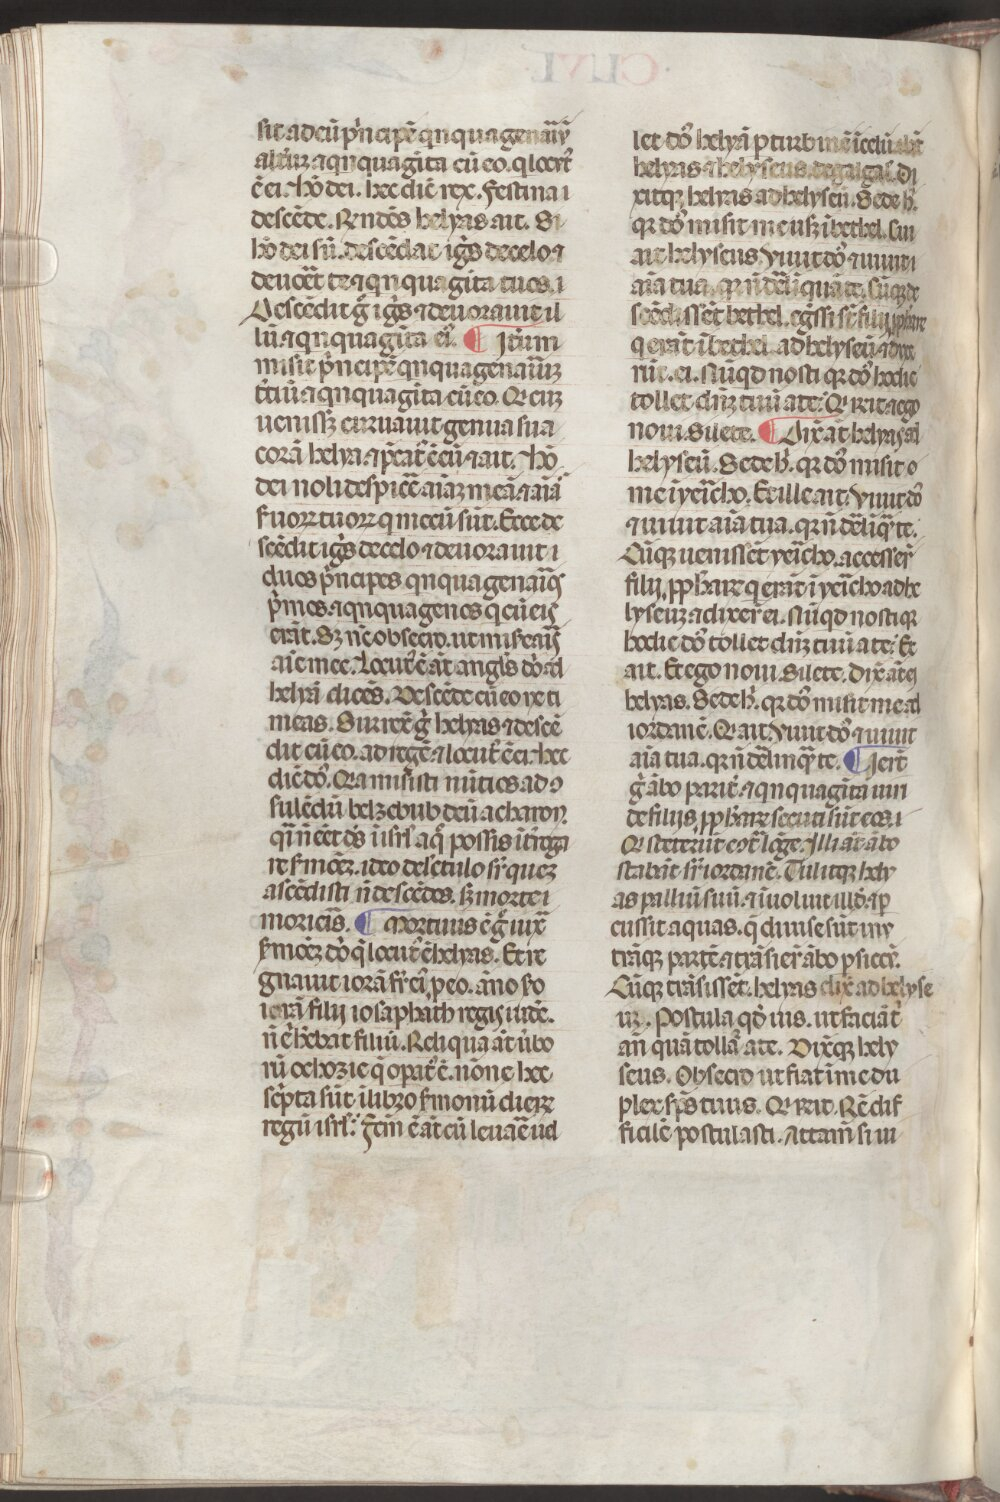 sit ad eū p̄ncipē qnquagenariū
alterū ⁊ qnquagīta cū eo. q locut᷒
ē ei. hō dei. hec dic̄ rex. festina ⁊
descēde. Rn̄dēs helyas ait. Si
hō dei sū. descēdat iḡs de celo ⁊
deuoret te ⁊ qnquagīta tuos. ⁊
Descēdit g̊ iḡs ⁊ deuorauit il
lū ⁊ qnquagīta ei᷒. ¶ Itūm
misit p̄ncipē qnquagenariūm
t̄ciū ⁊ qnquagīta cū eo. Qi cum
uenissꝫ curuauit genua sua
corā helya ⁊ p̄cat᷒ ē eū ⁊ ait. hō
dei noli despicē aīam meā ⁊ aīā
s̄uorꝝ tuorꝝ q mecū sūt. Ecce de
scēdit iḡs de celo ⁊ deuorauit ⁊
duos p̄ncipes qnquagenaīos
p̄mos ⁊ qnquagenos q cū eis
erāt. Sꝫ nūc obsecro. ut misearis
aīe mee. Locut᷒ ē āt angls dnī ad
helyā dicēs. Descēde cū eo ne ti
meas. Surrexē g̊ helyas ⁊ descē
dit cū eo. ad regē ⁊ locut᷒ ē ei. hec
dic̄ dō. Qia misisti nūtios ad ɔ
sulēdū belzebub deū acharon.
qī nō eēt ds̄ ī isrl̄. a q̊ possis īt̄roga
re s̄mōeꝫ. ideo de lectulo sr̄ quem
ascēdisti nō descēdes. sꝫ morte ⁊
morieris. ¶ Mortuus ē g̊ iux̄
s̄mōeꝫ dnī q̄ locut᷒ ē helyas. Et re
gnauit iorā fr̄ ei᷒ p eo. āno sc̄do
iorā filij iosaphath regis iude.
nō ē hēbat filiū. Reliqua āt ūbo
rū ochozie q̄ opat᷒ ē. nōne hec
sc̄pta sūt ī libro s̄monū dierꝝ
regū isrl̄. c̄em ē āt cū leuare ud
let dō helyā p turbinē ī celū. ibāt
helyas ⁊ helyseus de galgal. Di
xitqꝫ helyas ad helyseū. Sede h̊.
qr dō misit me usꝫ ī bethel. Cui
ait helyseus. Viuit dō ⁊ uiuit
aīa tua. qr nō delīquā te. Cūqꝫ de
scēdissēt bethel. eḡssi sūt filij pphare
q erāt ī bethel. ad helyseū ⁊ dixe
rūt. ei. Nūqd nosti qr dō hodie
tollet dnm̄ tuū a te. Qi rn̄t. et ego
noui. silete. ¶ Dixāt helyas ad
helyseū. Sede h̊. qr dō misit
me ī yericho. Et ille ait. Viuit dō
⁊ uiuit aīa tua. qr nō delīqꝫ te.
Cūqꝫ uenissēt yericho. accesserūt
filij pphare q erāt ī yericho ad he
lyseum ⁊ dixerūt ei. Nūqd nosti qr
hodie dō tollet dnm̄ tuū a te. Et
ait. Et ego noui. silete. Dix̄ āt ei
helyas. Sede h̊. qr dō misit me ad
iordanē. Qi ait. Viuit dō ⁊ uiuit
aīa tua. qr nō delinqꝫ te. ¶ Ierūt
g̊ ābo parit̄. ⁊ qnquagīta uiri
de filijs pphare secuti sūt eos. ⁊
Qi steterūt ecōt lōge. Illi āt ābo
stabāt sr̄ iordanē. Tulitqꝫ hely
as palliū suū. ⁊ īuoluit illd. ⁊ p
cussit aquas. q̄ diuise sūt in v
trāqꝫ partē ⁊ trāsierūt ābo p siccū.
Cūqꝫ trāsissēt. helyas dix̄ ad helyse
um. Postula qd̊ uis. ut faciā t̄
an̄ quā tollar a te. Dixitqꝫ hely
seus. Obsecro ut fiat ī me du
plex sp̄s tuus. Qi rn̄t. Rē dif
ficilē postulasti. Attam̄ si ui